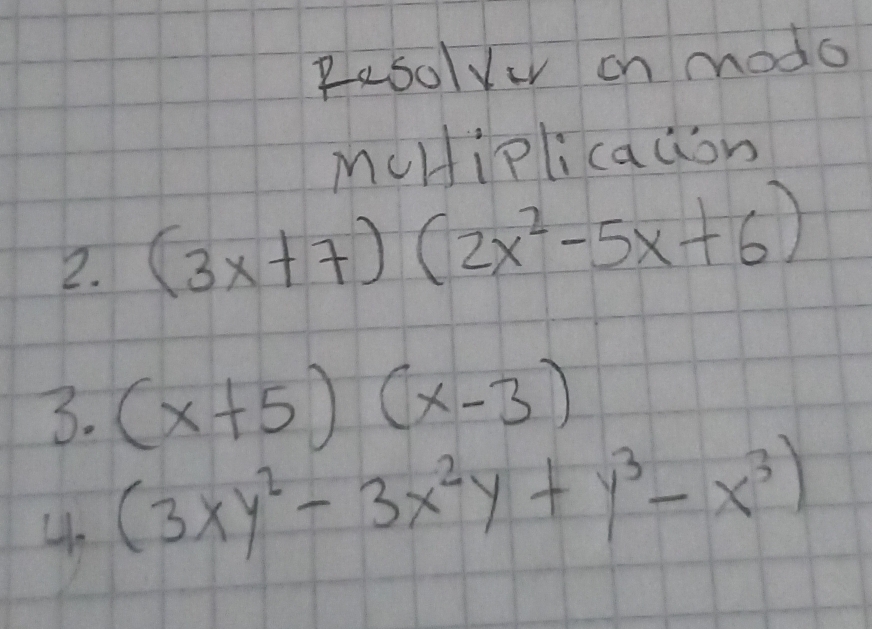 Resolver en modo
multiplicación
2. (3x+7) (2x²-5x+6)
3. (x+5) (x-3)
4. (3xy² - 3x²y + y³ - x³)